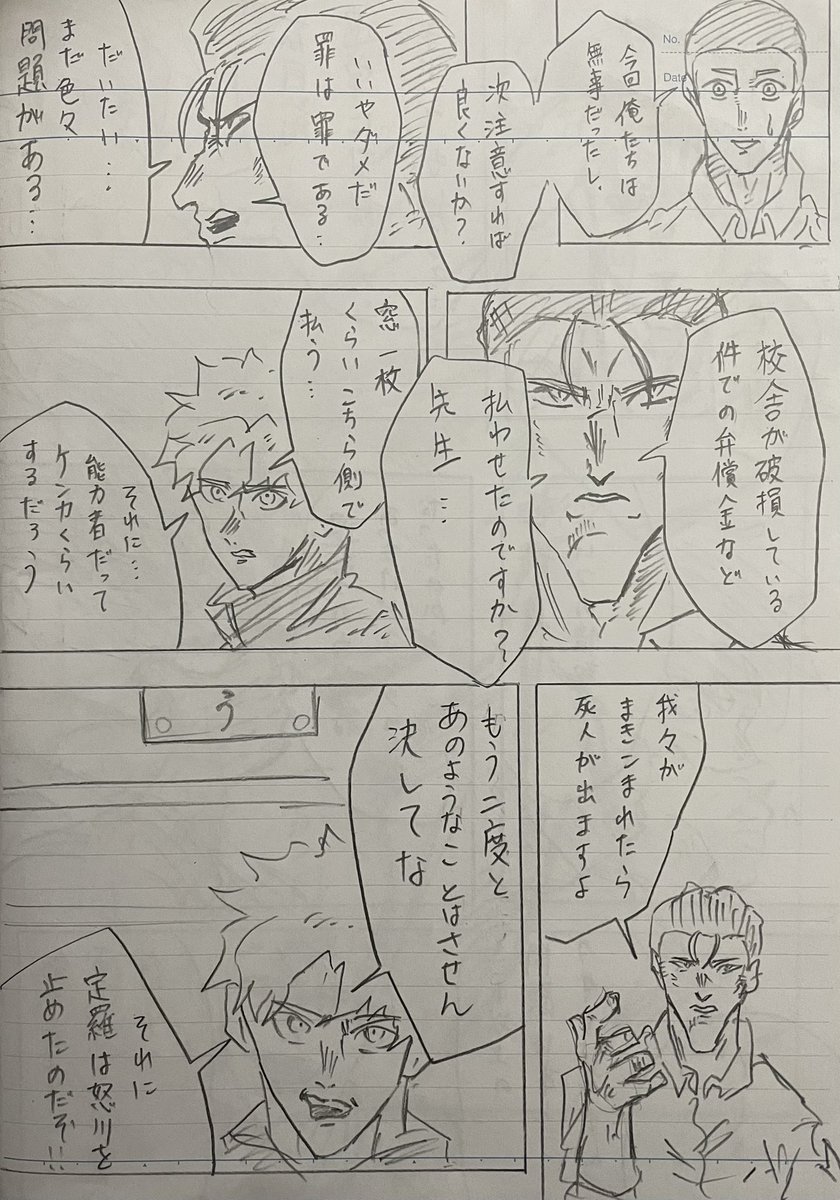 No.
Date
今回俺たちは
無事だったし、
次注意すれば
良くないか?
いいやダメだ
罪は罪である…
だいたい…
まだ色々
問題がある…
校舎が破損している
件での弁償金など
払わせたのですか?
先生…
窓一枚
くらいこちら側で
払う…
それに…
能力者だって
ケンカくらい
するだろう
我々が
まきこまれたら
死人が出ますよ
もう二度と
あのようなことはさせん
決してな
う
それに
定羅は怒川を
止めたのだぞ!!